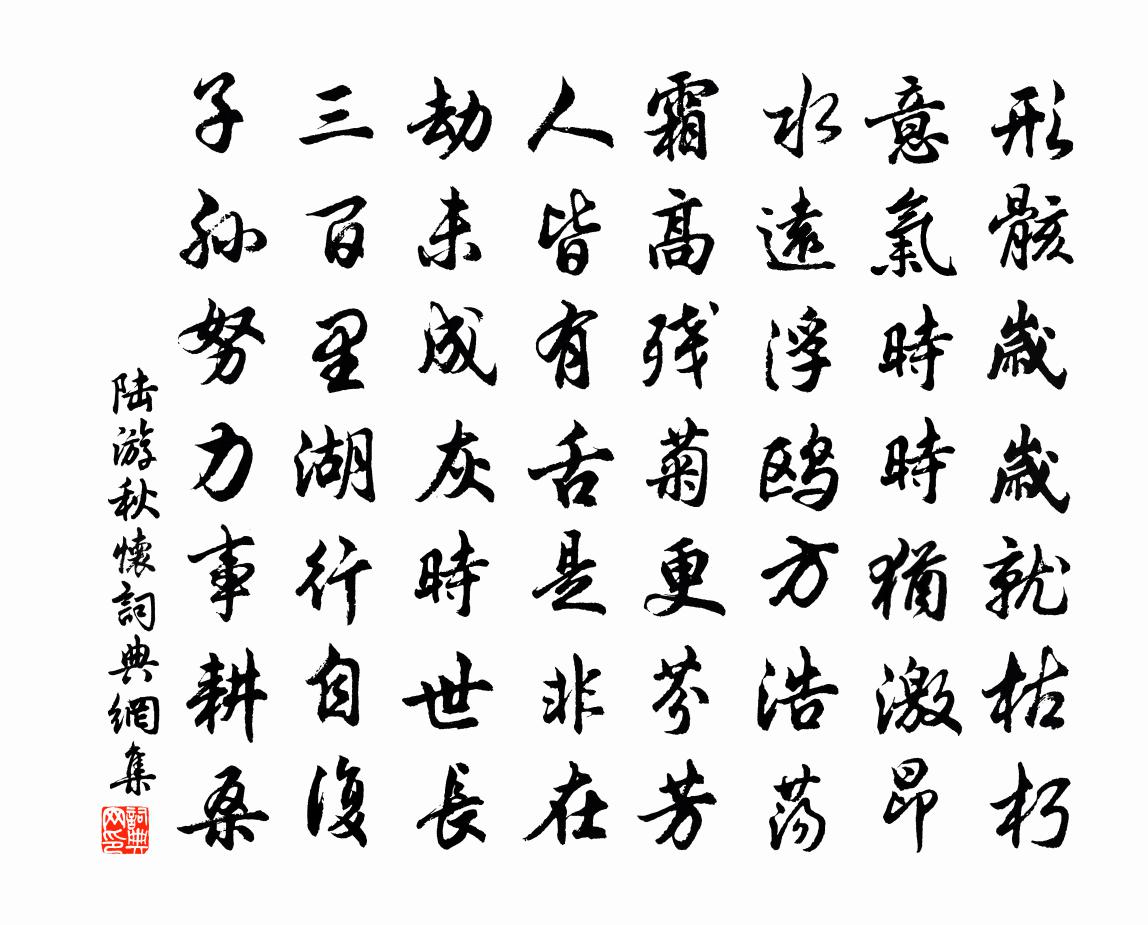 形骸歲歲就枯朽
意氣時時猶激昂
水遠浮鸥方浩蕩
霜高残菊更芬芳
人皆有舌是非在
劫未成灰時世長
三百里湖行自復
子孫努力事耕桑
陆游秋懷詞典網集
詞典网印